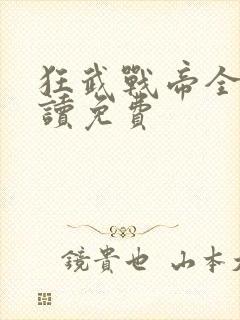 狂武戰帝全
讀免費
鏡貴也 山本